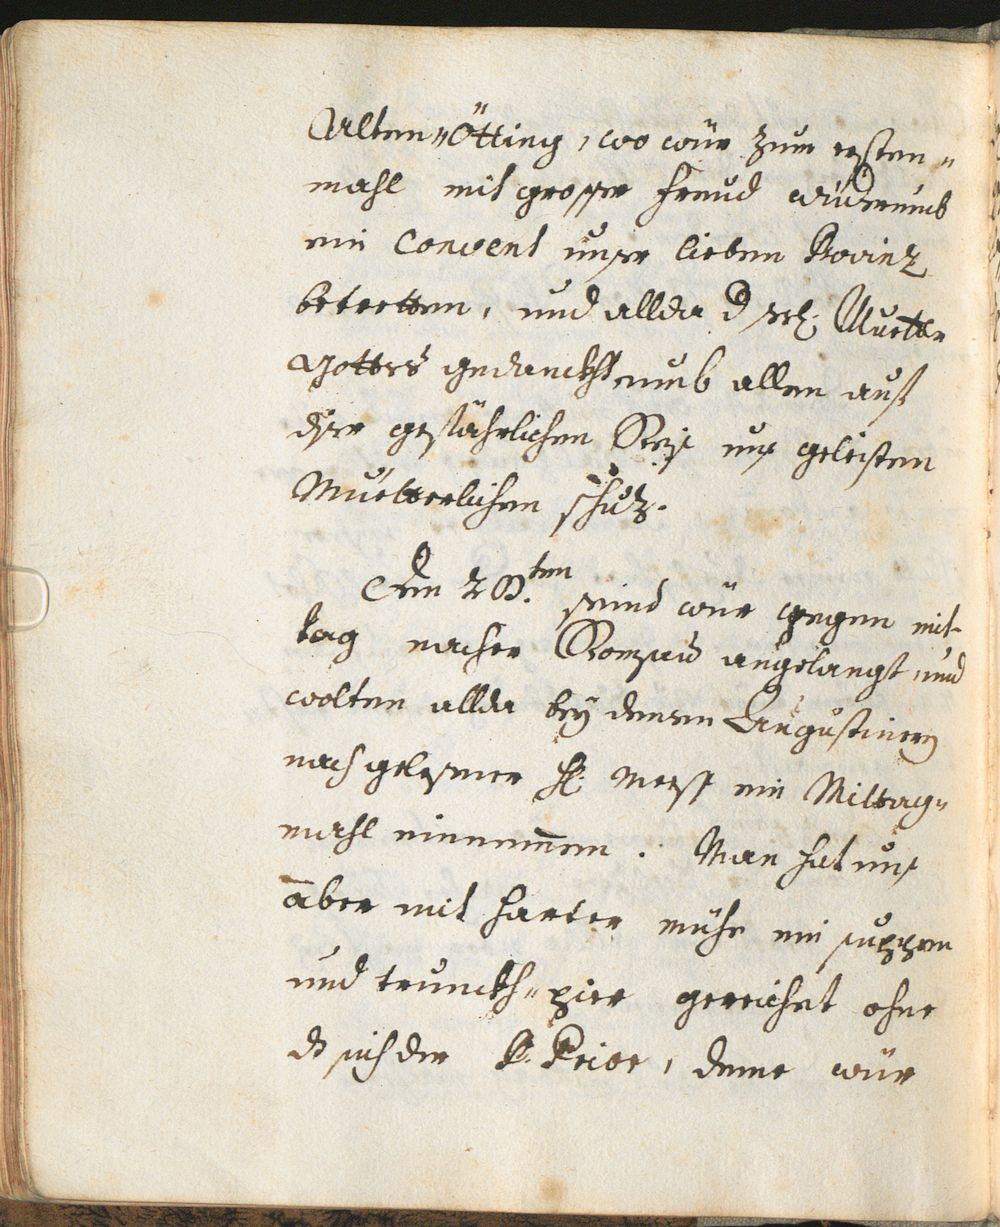 Alten=Ötting, wo wür zum ersten=
mahl mit grosser Freud widerumb
ein Convent unser lieben Provinz
betretten, und allda d sel: Muetter
Gottes gedanckht umb allen auf
diser gefährlichen Reis uns geleisten
Muetterlichen schuz.
Den 28.ten seind wür gegen mit-
tag nacher Ramsau angelangt, und
wolten allda bey denen Augustinern
nach gelesner hl. Mess ein Mittag=
mahl einnemmen. Man hat uns
aber mit harter mühe ein suppen
und trunckh=pier gereichet ohne
ds sich der P. Prior, deme wür